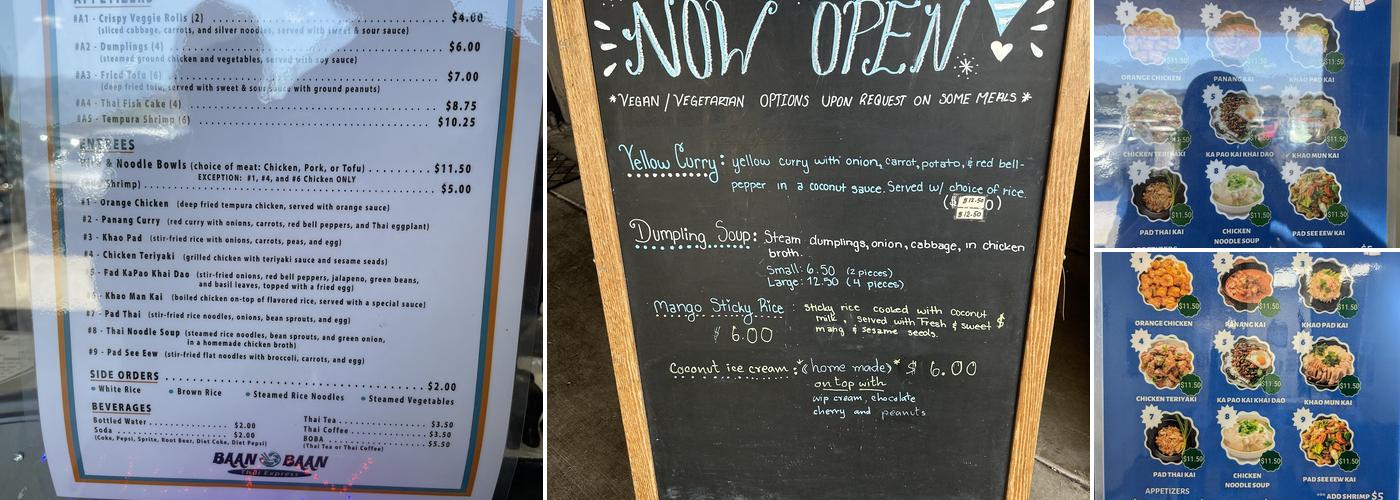 APPETIZERS
#A1 - Crispy Veggie Rolls (2) $4.00
(sliced cabbage, carrots, and silver noodles, served with sweet & sour sauce)
#A2 - Dumplings (4) $6.00
(steamed ground chicken and vegetables, served with soy sauce)
#A3 - Fried Tofu (6) $7.00
(deep fried tofu, served with sweet & sour sauce with ground peanuts)
#A4 - Thai Fish Cake (4) $8.75
#A5 - Tempura Shrimp (6) $10.25
ENTREES
& Noodle Bowls (choice of meat: Chicken, Pork, or Tofu) $11.50
EXCEPTION: #1, #4, and #6 Chicken ONLY
Shrimp) $5.00
#1 - Orange Chicken (deep fried tempura chicken, served with orange sauce)
#2 - Panang Curry (red curry with onions, carrots, red bell peppers, and Thai eggplant)
#3 - Khao Pad (stir-fried rice with onions, carrots, peas, and egg)
#4 - Chicken Teriyaki (grilled chicken with teriyaki sauce and sesame seeds)
#5 - Pad KaPao Khai Dao (stir-fried onions, red bell peppers, jalapeno, green beans,
and basil leaves, topped with a fried egg)
#6 - Khao Man Kai (boiled chicken on-top of flavored rice, served with a special sauce)
#7 - Pad Thai (stir-fried rice noodles, onions, bean sprouts, and egg)
#8 - Thai Noodle Soup (steamed rice noodles, bean sprouts, and green onion,
in a homemade chicken broth)
#9 - Pad See Eew (stir-fried flat noodles with broccoli, carrots, and egg)
SIDE ORDERS $2.00
• White Rice • Brown Rice • Steamed Rice Noodles • Steamed Vegetables
BEVERAGES
Bottled Water $2.00
Soda $2.00
(Coke, Pepsi, Sprite, Root Beer, Diet Coke, Diet Pepsi)
Thai Tea $3.50
Thai Coffee $3.50
BOBA $5.50
(Thai Tea or Thai Coffee)
BAAN BAAN
Thai Express
NOW OPEN
*VEGAN/VEGETARIAN OPTIONS UPON REQUEST ON SOME MEALS*
Yellow Curry: yellow curry with onion, carrot, potato, & red bell-
pepper in a coconut sauce. Served w/ choice of rice.
($ $12.50 0)
$12.50
Dumpling Soup: Steam dumplings, onion, cabbage, in chicken
broth.
Small: 6.50 (2 pieces)
Large: 12.50 (4 pieces)
Mango Sticky Rice: sticky rice cooked with coconut
milk, served with Fresh & sweet
mang & sesame seeds.
$ 6.00
Coconut ice cream: *(home made)* $ 6.00
on top with
wip cream, chocolate
cherry and peanuts
1 2 3
$11.50 $11.50 $11.50
ORANGE CHICKEN PANANG KAI KHAO PAD KAI
5
$11.50 $11.50 $11.50
CHICKEN TERIYAKI KA PAO KAI KHAI DAO KHAO MUN KAI
7 8 9
$11.50 $11.50 $11.50
PAD THAI KAI CHICKEN NOODLE SOUP PAD SEE EEW KAI
APPETIZERS
$5
$11.50 $11.50 $11.50
ORANGE CHICKEN PANANG KAI KHAO PAD KAI
4 5 6
$11.50 $11.50 $11.50
CHICKEN TERIYAKI KA PAO KAI KHAI DAO KHAO MUN KAI
7 8 9
$11.50 $11.50 $11.50
PAD THAI KAI CHICKEN NOODLE SOUP PAD SEE EEW KAI
APPETIZERS
*** ADD SHRIMP $5